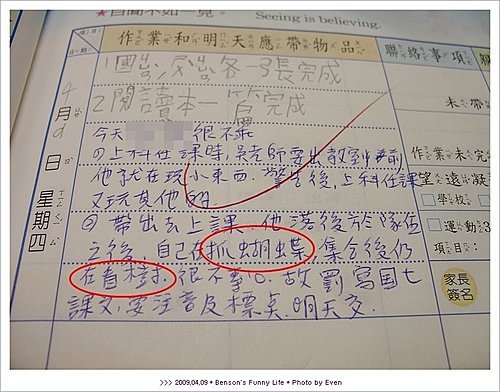 ★百聞不如一見 Seeing is believing.
作業和明天應帶物品
聯絡事項
日期
1.國出,永出各一張完成
2.閱讀本一篇完成
今天 很不乖
上科任課時,吳老師要出教到看前
他就在玩小東西,警告後,上科任課
又玩其他的
帶出去上課,他落後於隊伍
之後,自己在抓蝴蝶,集合後仍
在看樹,很不專心,故罰寫國七
課文,要注音及標点,明天交.
月
日
星期四
未帶
作業未完
望遠凝
學校
運動3
項目:
家長簽名
>>> 2009.04.09 • Benson's Funny Life • Photo by Even